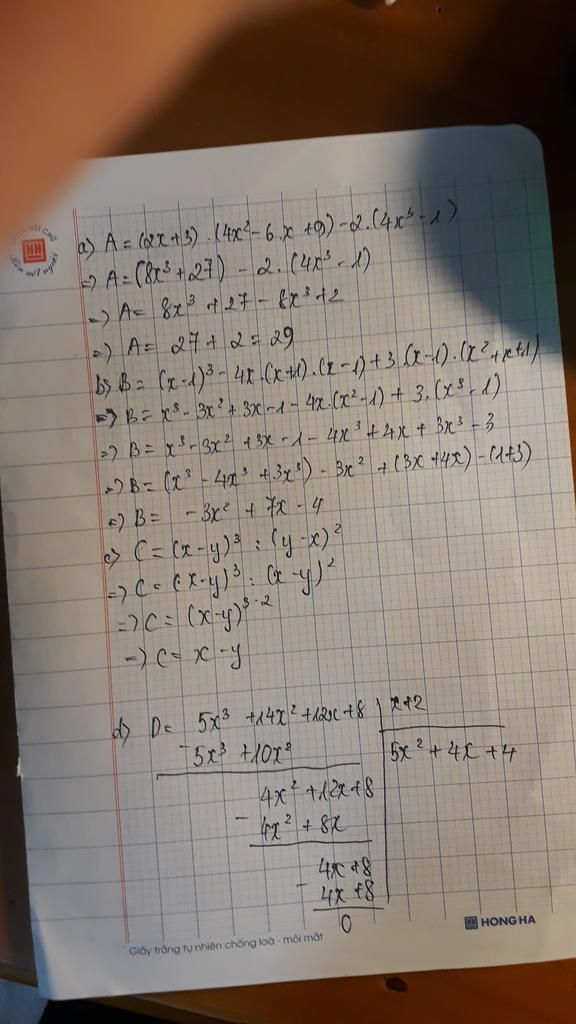 a) A = (2x+3).(4x² - 6.x + 9) - 2.(4x³ - 1)
=> A = (8x³ + 27) - 2.(4x³ - 1)
=> A = 8x³ + 27 - 8x³ + 2
=> A = 27 + 2 = 29
b) B = (x-1)³ - 4x.(x+1).(x-1) + 3.(x-1).(x² + x + 1)
=> B = x³ - 3x² + 3x - 1 - 4x.(x² - 1) + 3.(x³ - 1)
=> B = x³ - 3x² + 3x - 1 - 4x³ + 4x + 3x³ - 3
=> B = (x³ - 4x³ + 3x³) - 3x² + (3x + 4x) - (1+3)
=> B = -3x² + 7x - 4
c) C = (x-y)³ : (y-x)²
=> C = (x-y)³ : (x-y)²
=> C = (x-y)³⁻²
=> C = x - y
d) D = 5x³ + 14x² + 12x + 8 | x+2
- 5x³ + 10x² | 5x² + 4x + 4
4x² + 12x + 8
- 4x² + 8x
4x + 8
- 4x + 8
0
HONG HA
Giấy trắng tự nhiên chống loá - mỏi mắt